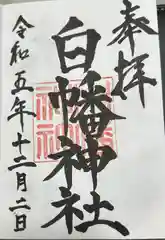 奉拝
白幡神社
令和五年十二月二日